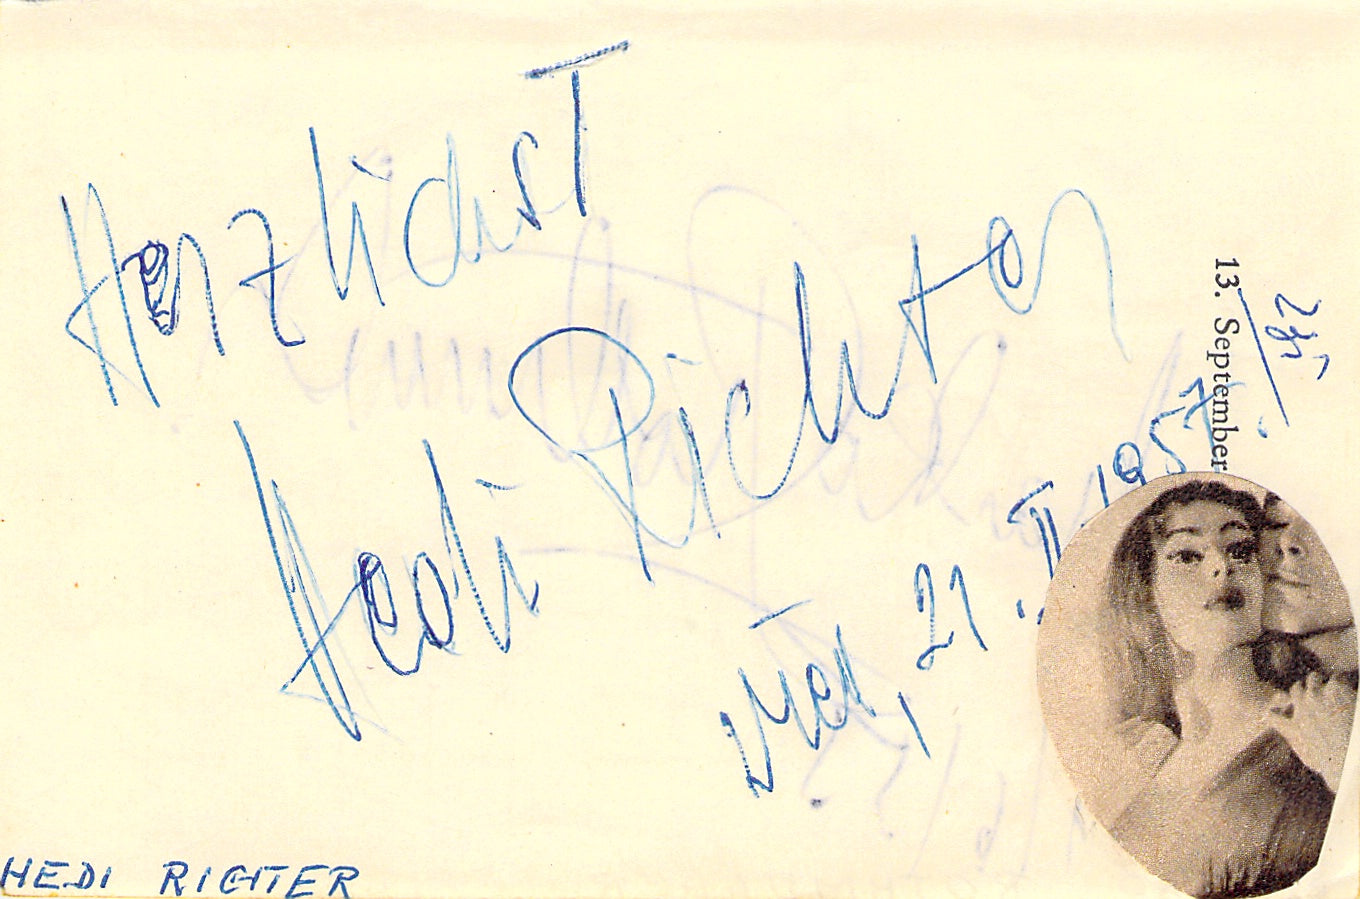 Herzlichst
Hedi Richter
21. II. 1957
13. September
HEDI RICHTER